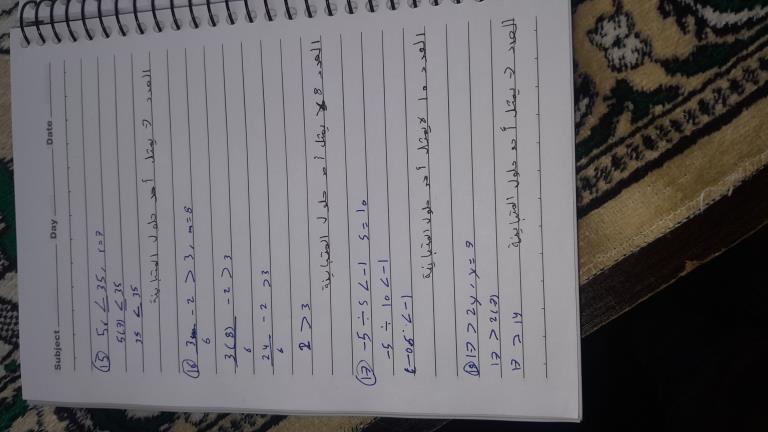 Subject Day Date
(15) 5r ≤ 35, r=7
5(7) ≤ 35
35 ≤ 35
العدد 7 يمثل أحد حلول المتباينة
(16) 3m/6 - 2 > 3, m=8
3(8)/6 - 2 > 3
24/6 - 2 > 3
2 > 3
العدد 8 لا يمثل أحد حلول المتباينة
(17) -5 ÷ s < -1 s=10
-5 ÷ 10 < -1
العدد 10 لا يمثل أحد حلول المتباينة
17 > 2y, y=7
17 > 2(7)
17 > 14
العدد 7 يمثل أحد حلول المتباينة